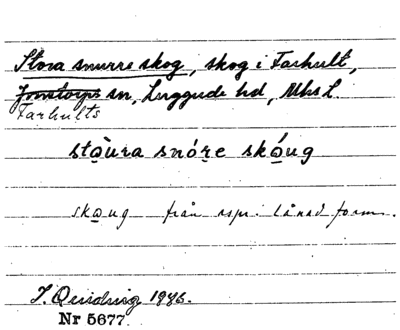 Stora snurre skog, skog i Farhult,
Jonstorps sn, Luggude hd, Mhs L.
Farhults
stạ̊̀ura snóṛe skạ̊́ug
skạug från rspr. lånad form.
I. Quidwig 1946.
Nr 5677